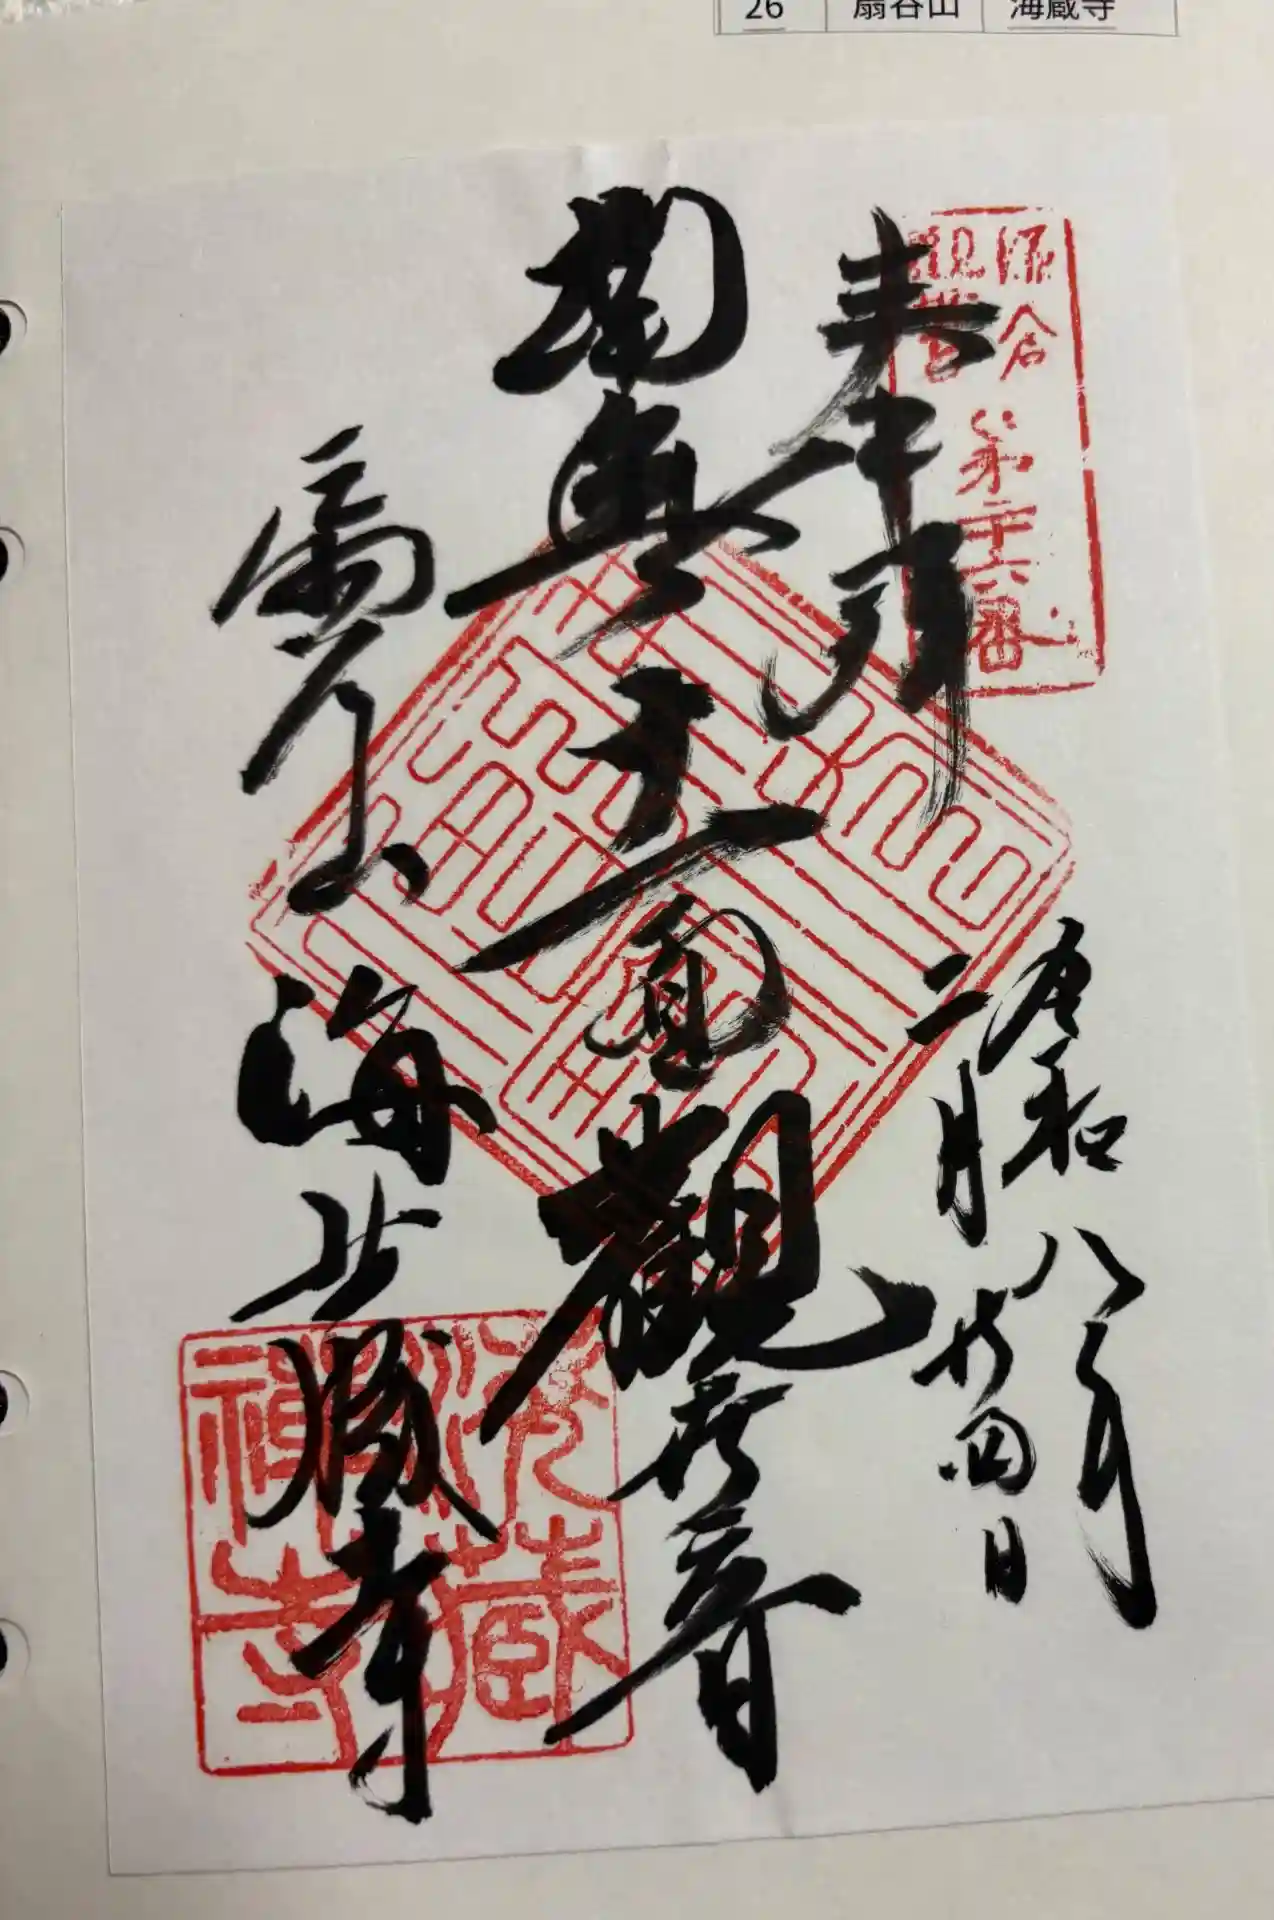 26 扇谷山 海蔵寺
鎌倉
観世音
第二十六番
奉拝
令和八年
二月廿四日
南無十一面觀世音
扇谷山
海藏寺
海藏
禅寺